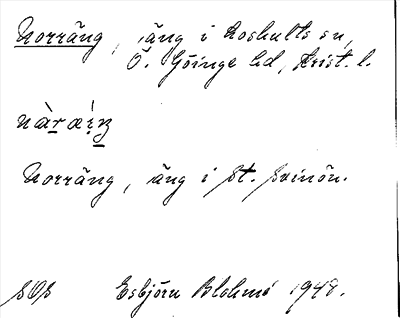 Norräng, äng i Loshults sn,
Ö. Göinge hd, Krist. l.
Norräng, äng i St. Svinön.
SOS Esbjörn Blohmé 1948.